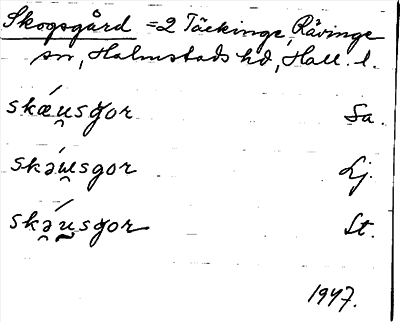 Skogsgård = 2 Täckinge, Rävinge
sn, Halmstads hd, Hall. l.
skǽu̯sgor Sa.
skǝ́u̯sgor Lj.
skǝ̯́u̯sgor St.
1947.